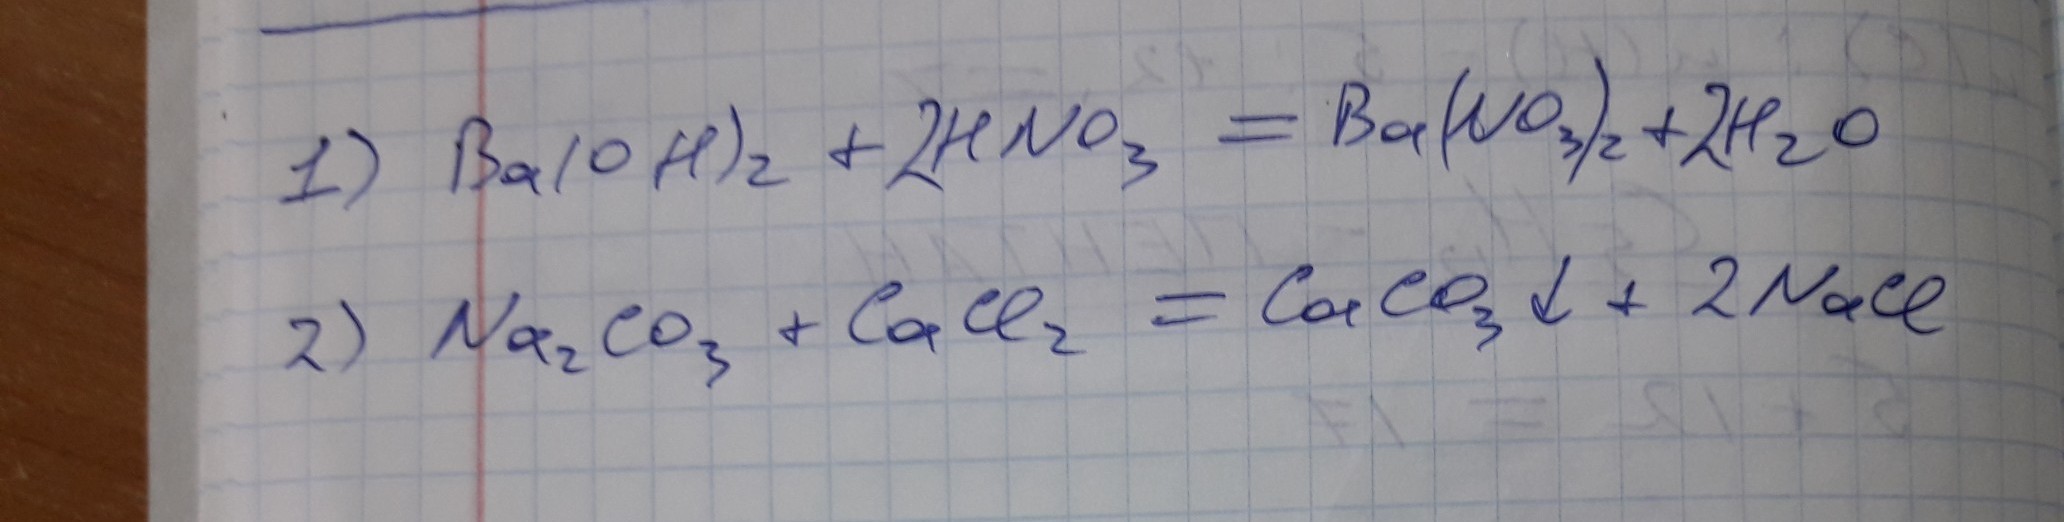 1) Ba(OH)₂ + 2HNO₃ = Ba(NO₃)₂ + 2H₂O
2) Na₂CO₃ + CaCl₂ = CaCO₃↓ + 2NaCl